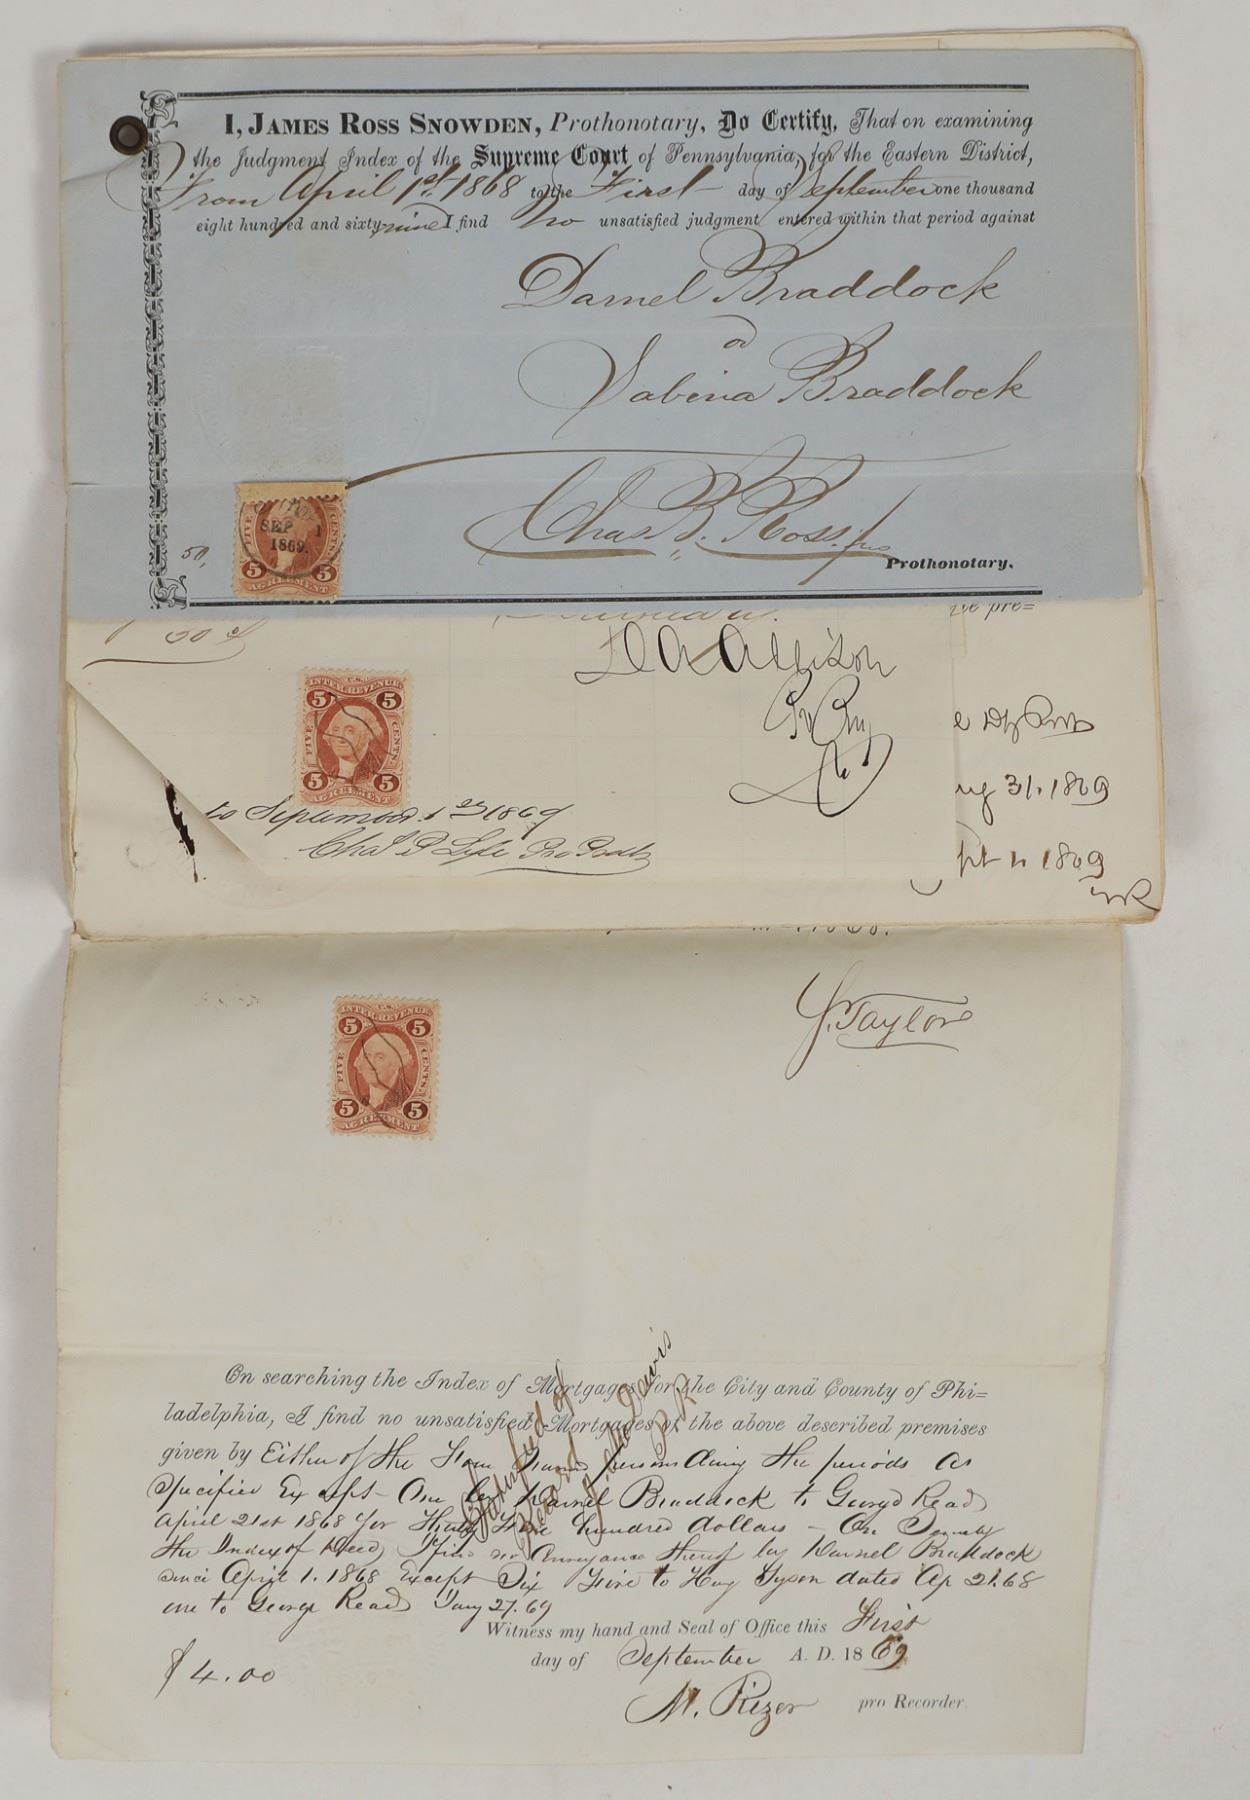 I, JAMES ROSS SNOWDEN, Prothonotary, Do Certify, That on examining
the Judgment Index of the Supreme Court of Pennsylvania, for the Eastern District,
From April 1st 1868 to the First day of September one thousand
eight hundred and sixty nine I find no unsatisfied judgment entered within that period against
Daniel Braddock
or
Sabina Braddock
Chas B. Ross pro
Prothonotary.
50,
SEP 1
1869.
FIVE CENTS.
5 5
AGREEMENT
the pre=
50 cts
D A Allison
U.S.
INTER. REVENUE
5 5
FIVE CENTS.
5 5
AGREEMENT
ug 31. 1869
to September 1st 1869
Chas P Lyle Pro Proth
pt 1 1869
J. Taylor
U.S.
INTER. REVENUE
5 5
FIVE CENTS.
5 5
AGREEMENT
On searching the Index of Mortgages for the City and County of Phi=
ladelphia, I find no unsatisfied Mortgages of the above described premises
given by Either of the persons during the periods as
specified Except One by Daniel Braddock to George Read
April 21st 1868 for Thirty hundred dollars – On
the Index of Deeds I find no Conveyance thereof by Daniel Braddock
since April 1. 1868 Except Six to Tyson dated Ap 21.68
one to George Read Jany 27.69
Satisfied of
Record
Davis
Witness my hand and Seal of Office this First
day of September A. D. 1869
$4.00
M. Rizer pro Recorder.